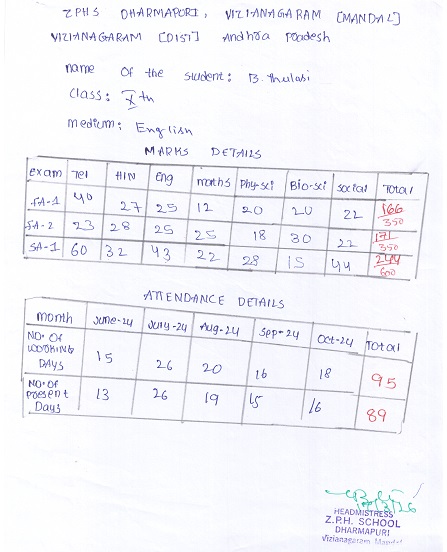 ZPHS DHARMAPURI, VIZIANAGARAM [MANDAL]
VIZIANAGARAM [DIST] Andhra Pradesh
name Of the student: B. Thulasi
class: X th
medium: English
MARKS DETAILS
exam Tel HIN Eng maths Phy-sci Bio-sci social Total
FA-1 40 27 25 12 20 20 22 166/350
FA-2 23 28 25 25 18 30 22 171/350
SA-1 60 32 43 22 28 15 44 244/600
ATTENDANCE DETAILS
month June-24 July-24 Aug-24 Sep-24 Oct-24 Total
NO. OF WORKING DAYS 15 26 20 16 18 95
NO. OF Present Days 13 26 19 15 16 89
HEADMISTRESS
Z.P.H. SCHOOL
DHARMAPURI
Vizianagaram Mandal